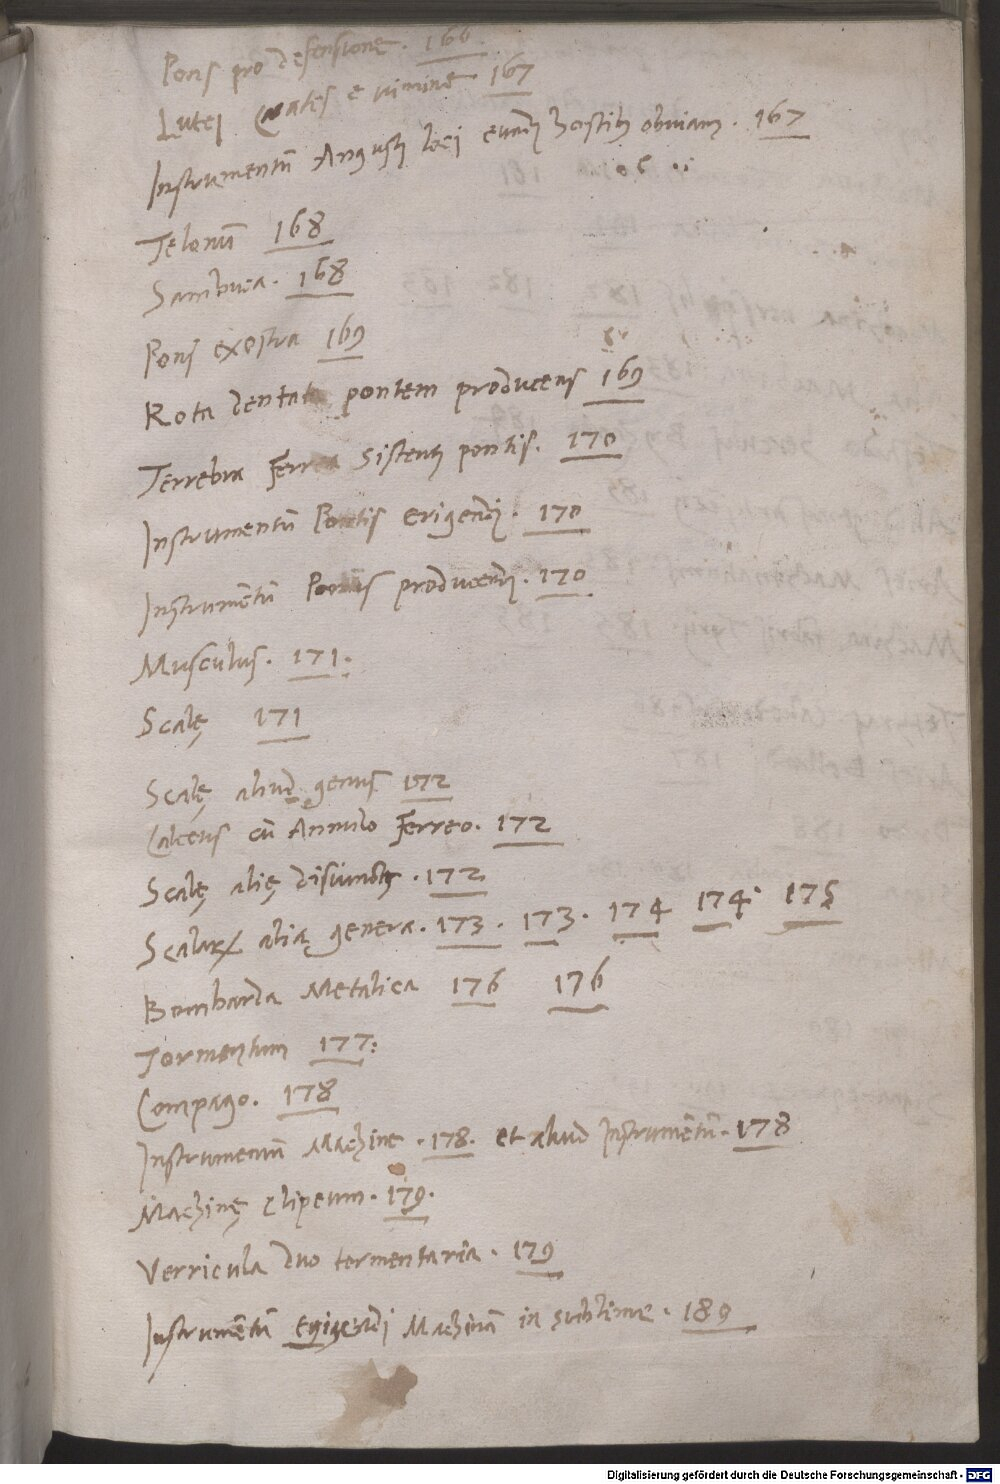 Pons pro defensione. 166
Lutei Crates e vimine 167
Instrumentū Angusti loci eundi hostib obviam. 167
Telonū 168
Sambuca. 168
Pons exostra 169
Rota dentata pontem producens 169
Terrebra Ferrea sistens pontis. 170
Instrumentū Pontis erigendi. 170
Instrumētū Pontis producendi. 170
Musculus. 171.
Scalę 171
Scalę aliud genus 172
Calceus cū Annulo Ferreo. 172
Scalę alię disiunctę. 172
Scalarꝝ alia genera. 173. 173. 174 174. 175
Bombarda Metalica 176 176
Tormentum 177:
Compago. 178
Instrumentū Machine. 178. et aliud Instrumētū. 178
Machinę clipeum. 179.
Verricula duo tormentaria. 179
Instrumētū Erigendi Machinā in sublime. 189
Digitalisierung gefördert durch die Deutsche Forschungsgemeinschaft - DFG